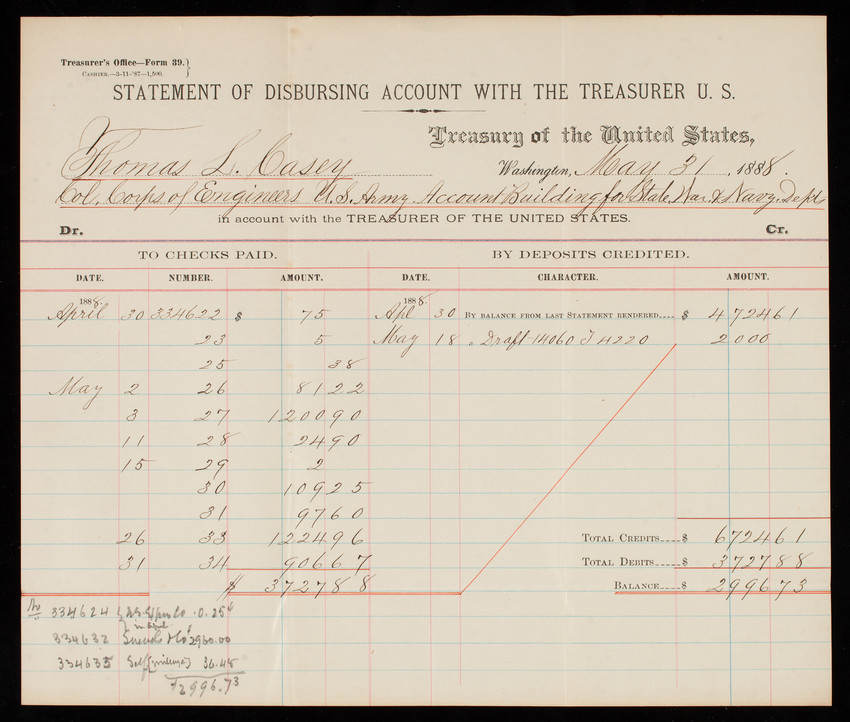 Treasurer's Office—Form 39.}
Cashier.—3-11-'87—1,500.
STATEMENT OF DISBURSING ACCOUNT WITH THE TREASURER U. S.
Treasury of the United States,
Thomas L. Casey Washington, May 31, 1888.
Col. Corps of Engineers U.S. Army Account Building for State, War & Navy Dept
in account with the TREASURER OF THE UNITED STATES.
Dr. Cr.
TO CHECKS PAID. BY DEPOSITS CREDITED.
DATE. NUMBER. AMOUNT. DATE. CHARACTER. AMOUNT.
1888. 1888.
April 30 334622 $ 75 Apl 30 By balance from last Statement rendered.... $ 4 724 61
23 5 May 18 " Draft 14060 I 4220 2 000
25 38
May 2 26 81 22
3 27 1 200 90
11 28 24 90
15 29 2
30 109 25
31 97 60
26 33 1 224 96 Total Credits.... $ 6 724 61
31 34 906 67 Total Debits.... $ 3 727 88
$ 3 727 88 Balance.... $ 2 996 73
No 334624 0.25¢
in April
334632 2960.00
334635 Self (mileage) 36.48
$2996.73